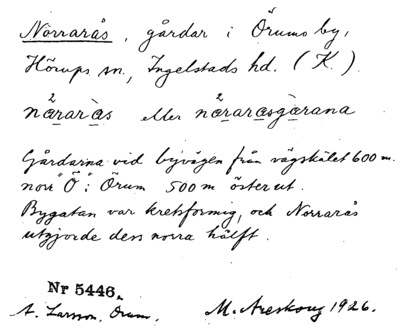 Norrarås, gårdar i Örums by,
Hörups sn., Ingelstads hd. (K.)
nararàs eller nararasgarana
Gårdarna vid byvägen från vägskälet 600 m.
norr "Ö" i Örum 500 m österut.
Bygatan var kretsformig, och Norrarås
utgjorde dess norra hälft.
Nr 5446.
A. Larsson, Örum. M. Areskoug 1926.